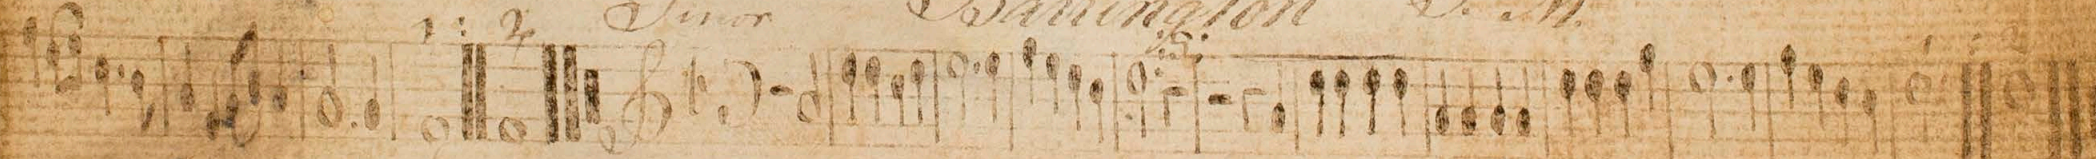 Tenor Barrington S. M.
1 2